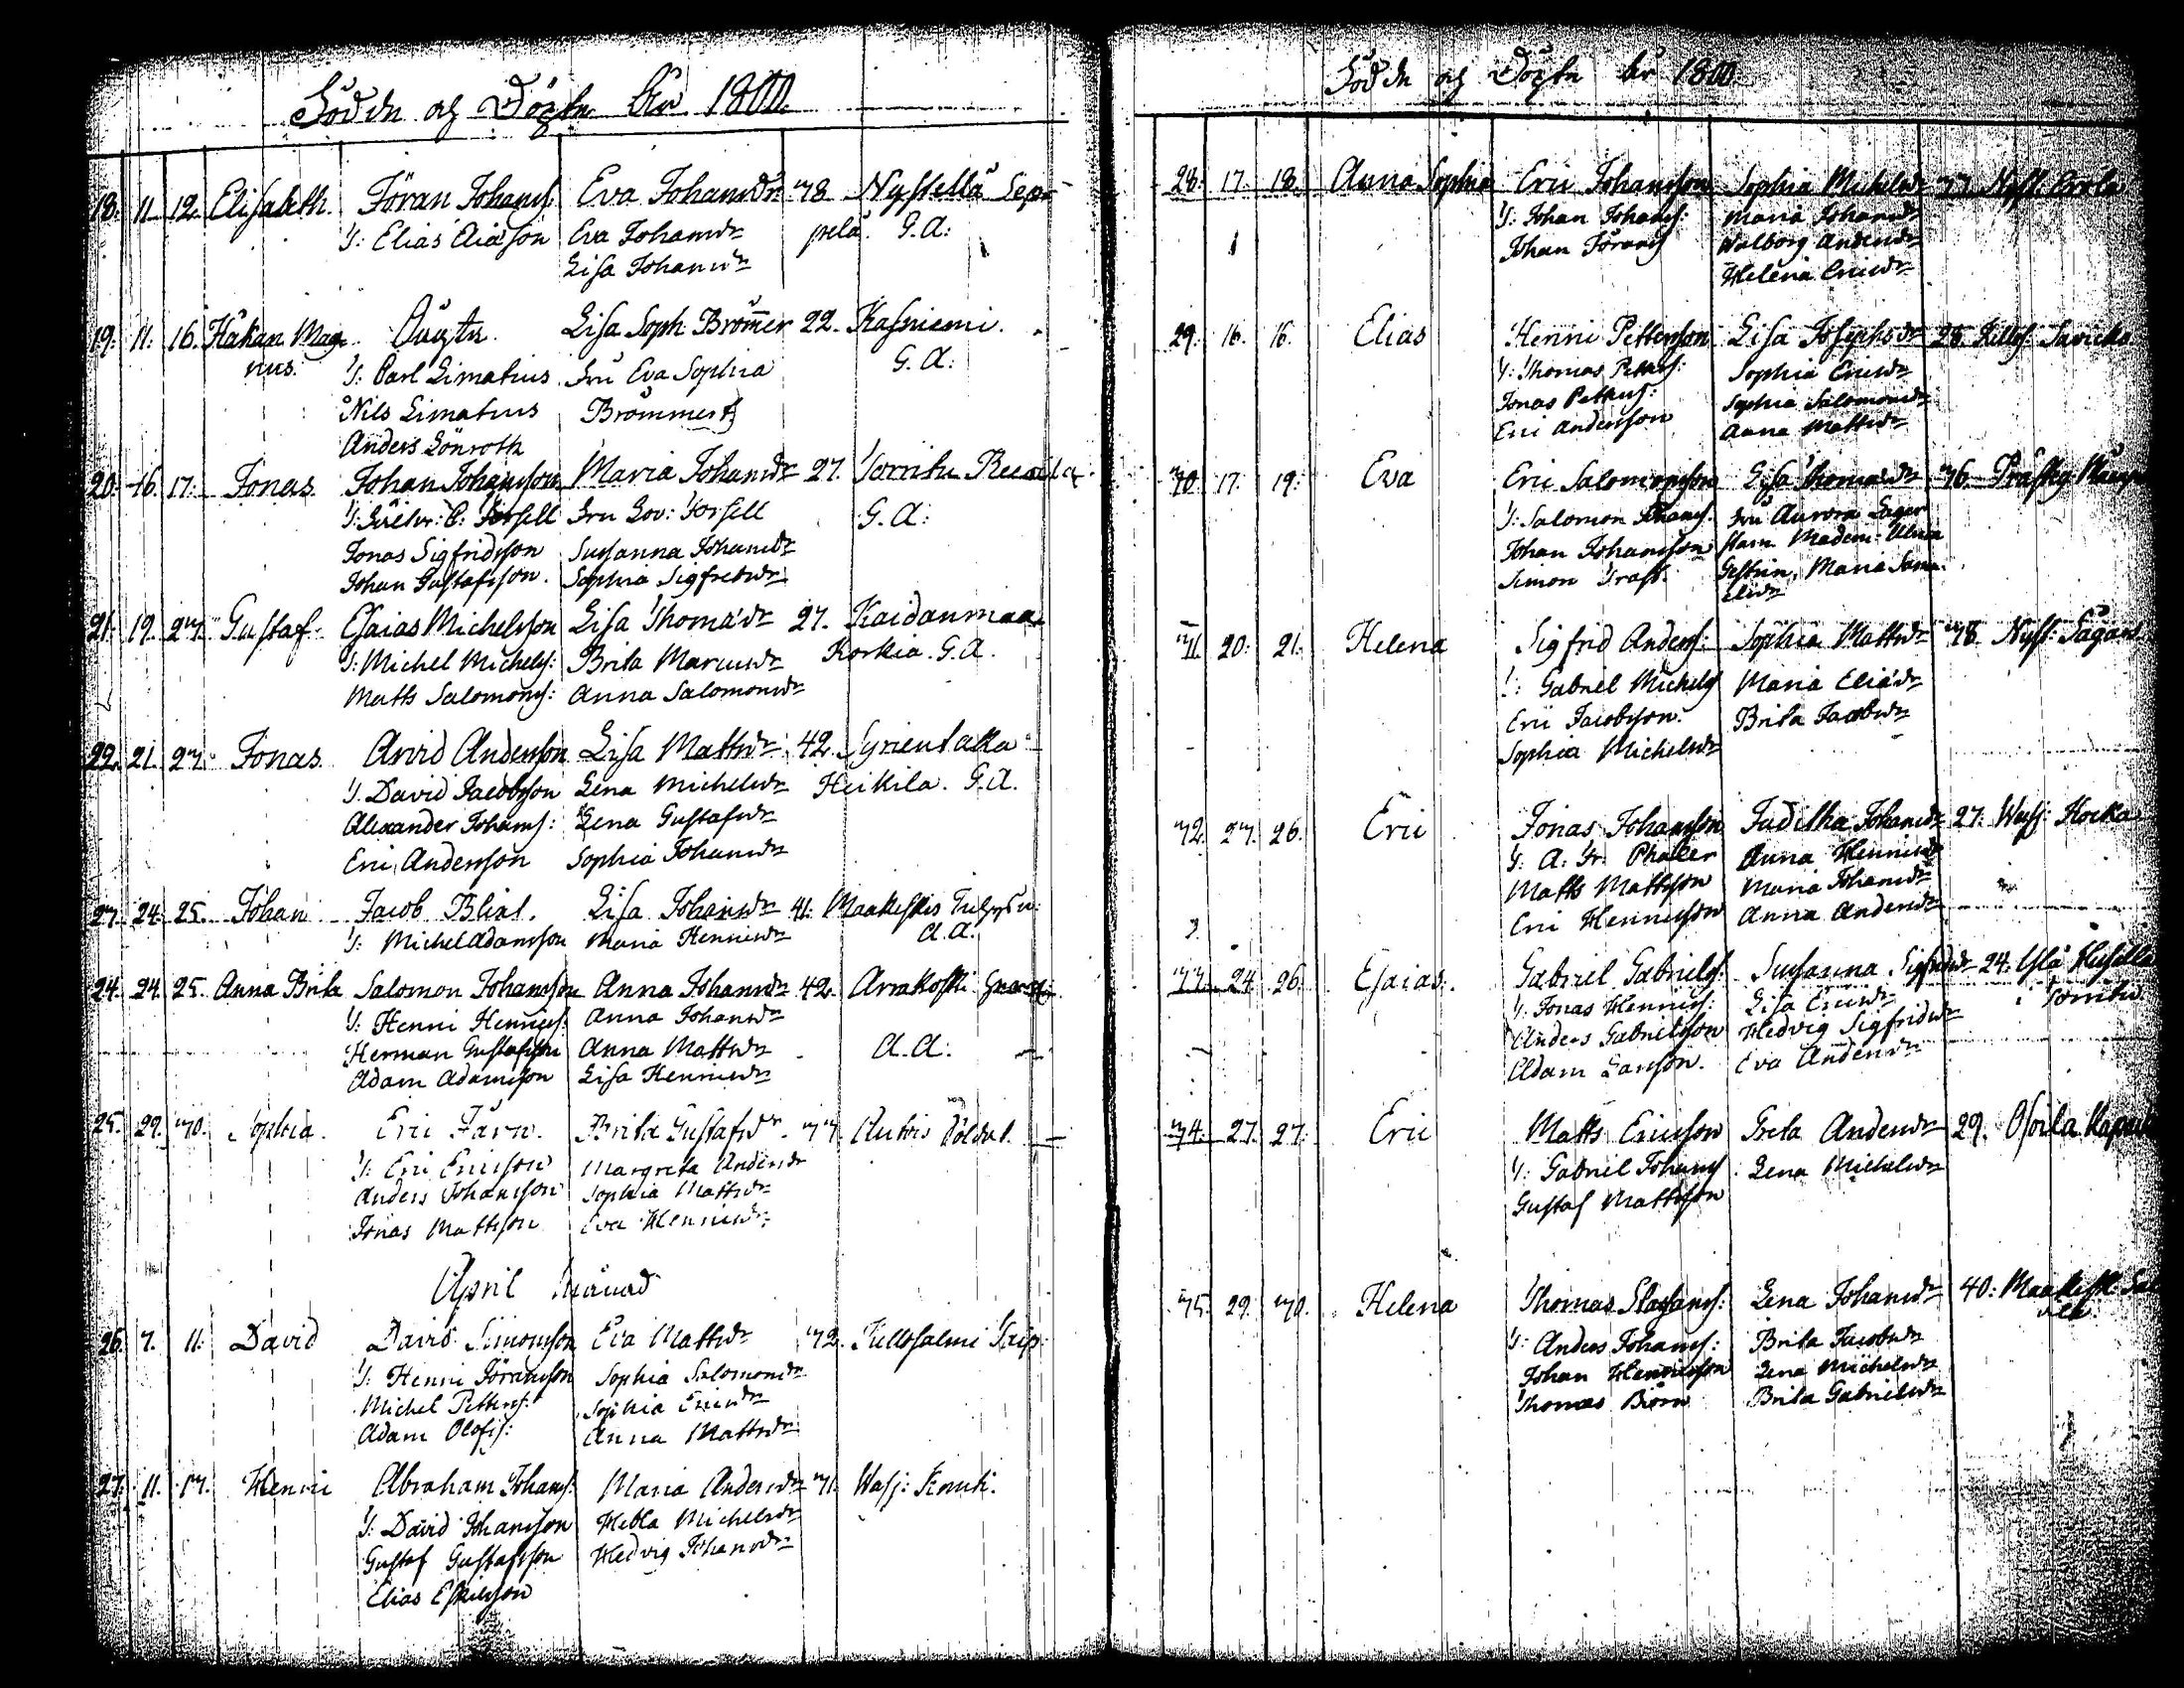 Född och Döpte År 1800.
18. 11 12 Elisabeth. Jöran Johans: Eva Johansdr 38 Nystellä Sep-
T: Elias Eliasson Eva Johansdr pelä. G.A:
Lisa Johansdr
19. 11. 16. Håkan Mag- Lisa Soph Brömer 22. Kasniemi.
nus. T: Carl Limatius Fru Eva Sophia G.A:
Nils Limatius Brömmer
Anders Lönroth
20. 16. 17. Jonas. Johan Johansson Maria Johansdr 27. Torritu
T: C: Forsell Fru Lov: Forsell G.A:
Jonas Sigfridsson Susanna Johansdr
Johan Gustafsson. Sophia Sigfredsdr
21. 19. 23. Gustaf. Esaias Michelsson Lisa Thomasdr 27. Kaidanmaa
T: Michel Michels: Brita Marcusdr Korkia. G.A.
Matts Salomons: Anna Salomonsdr
22. 21. 23. Jonas. Arvid Andersson Lisa Mattsdr 42. Syrientaka
T. David Jacobsson Lena Michelsdr Heikila. G.A.
Alexander Johans: Lena Gustafsdr
Eric Andersson Sophia Johansdr
23. 24. 25. Johan Jacob Blial. Lisa Johansdr 41. Maakeskis
T: Michel Adamsson Maria Henricsdr A.A.
24. 24. 25. Anna Brita Salomon Johansson Anna Johansdr 42. Arrakoski
T: Henric Henrics: Anna Johansdr
Herman Gustafsson Anna Mattsdr A.A:
Adam Adamsson Lisa Henricsdr
25. 29. 30. Sophia. Eric Färn. Brita Gustafsdr. 33
T: Eric Ericsson Margreta Andersdr
Anders Johansson Sophia Mattsdr
Jonas Mattsson Eva Henricsdr
April Månad
26. 7. 11. David David Simonsson Eva Mattsdr 32. Tullosalmi
T: Henric Jöransson Sophia Salomonsdr
Michel Petters: Sophia Ericsdr
Adam Olofs: Anna Mattsdr
27. 11. 13. Henric Abraham Johans: Maria Andersdr 31. Wasj:
T: David Johansson Hebla Michelsdr
Gustaf Gustafsson Hedvig Johansdr
Elias Eskilsson
Född och Döpte År 1800.
28. 17. 18. Anna Sophia Eric Johansson Sophia Michelsdr 33. Nyst. Errola
T: Johan Johans: Maria Johansdr
Johan Jörans Walborg Andersdr
Helena Ericsdr
29. 16. 16. Elias Henric Pettersson Lisa Josephsdr 28.
T: Thomas Petters: Sophia Ericsdr
Jonas Petters: Sophia Salomonsdr
Eric Andersson Anna Mattsdr
30. 17. 19. Eva Eric Salomonsson Lisa Thomasdr 36.
T: Salomon Johans. Fru Aurora Lager
Johan Johansson stam. Madem: Ulrica
Simon Trast. Gestrin, Maria Samu-
elsdr
31. 20. 21. Helena Sigfrid Anders: Sophia Mattsdr 38. Nyst:
T: Gabriel Michels Maria Eliasdr
Eric Jacobsson. Brita Jacobsdr
Sophia Michelsdr
32. 23. 26. Eric Jonas Johansson Juditha Johansdr 27.
T: A: Fr. Phaler Anna Henricsdr
Matts Mattsson Maria Johansdr
Eric Henricsson Anna Andersdr
33. 24. 26. Esaias. Gabriel Gabriels: Susanna Sigfridsdr 24.
T: Jonas Henrics: Lisa Ericsdr
Anders Gabrielsson Hedvig Sigfridsdr
Adam Larsson. Eva Andersdr
34. 27. 27. Eric Matts Ericsson Greta Andersdr 29.
T: Gabriel Johans Lena Michelsdr
Gustaf Mattsson
35. 29. 30. Helena Thomas Staffans: Lena Johansdr 40:
T: Anders Johans: Brita Jacobsdr
Johan Henricsson Lena Michelsdr
Thomas Biörn Brita Gabrielsdr